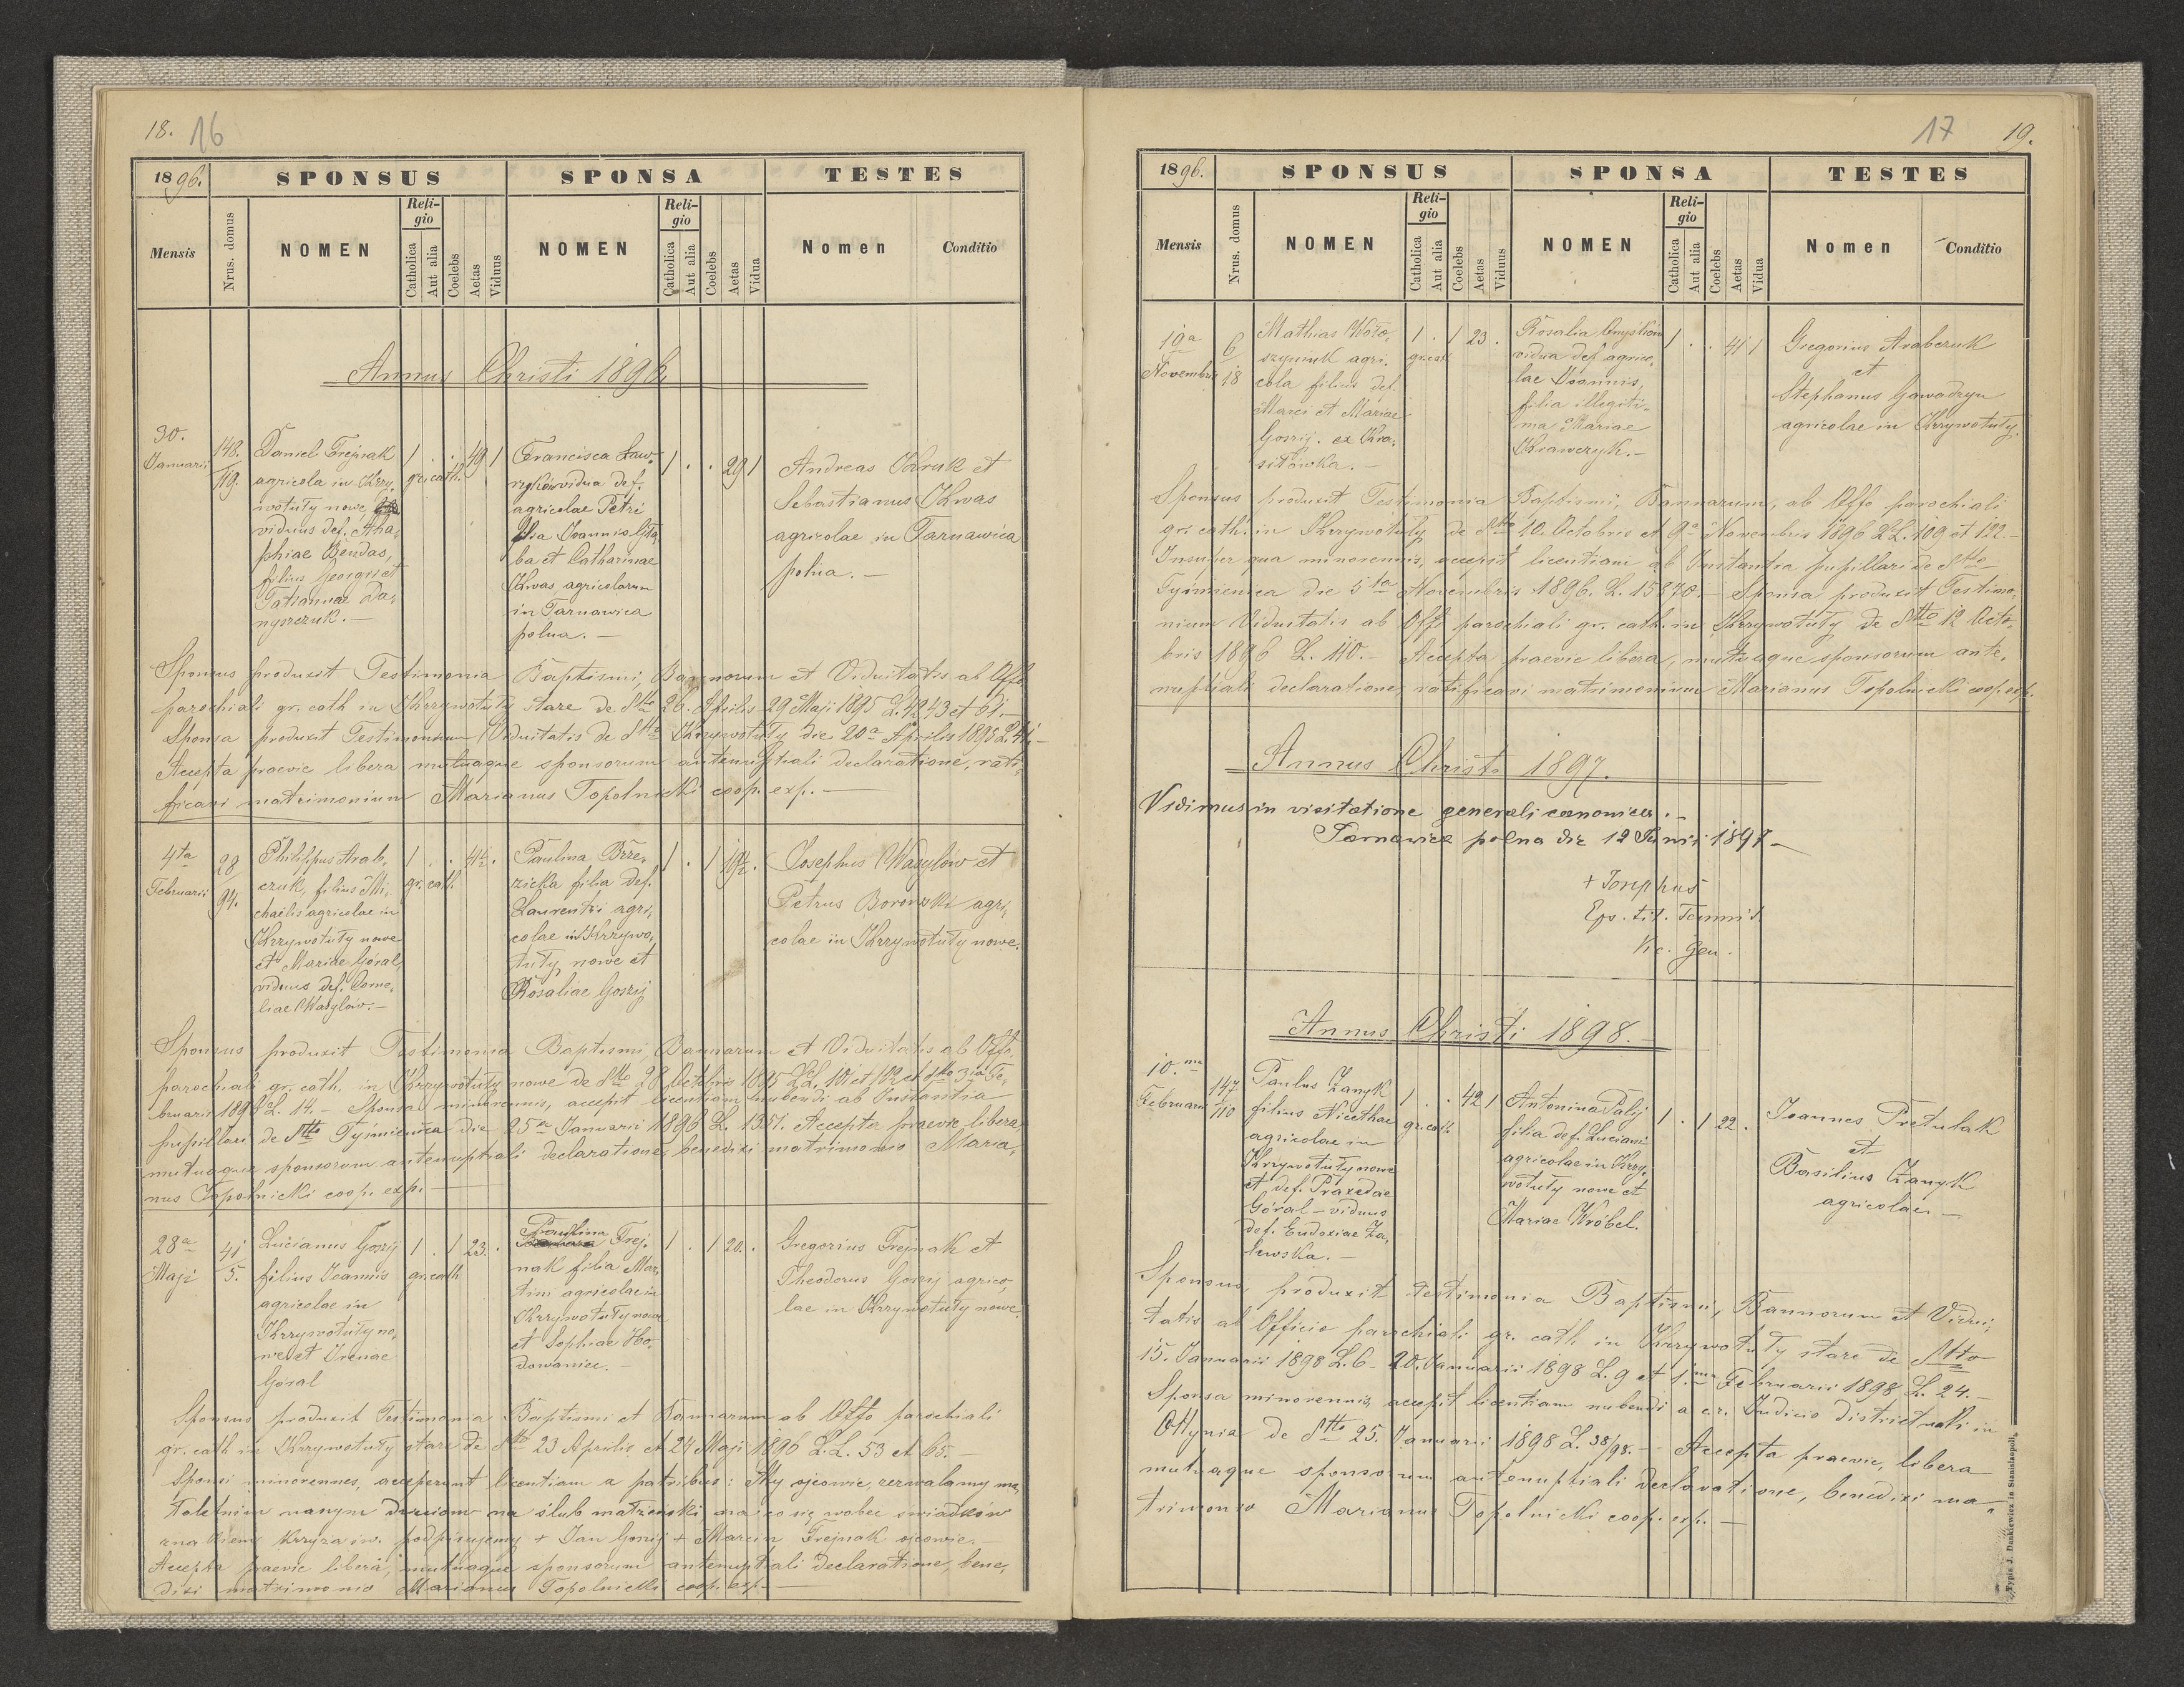 18. 16
1896. SPONSUS SPONSA TESTES
Mensis Nrus. domus NOMEN Religio Catholica Aut alia Coelebs Aetas Viduus NOMEN Religio Catholica Aut alia Coelebs Aetas Vidua Nomen Conditio
Annus Christi 1896.
30. Januarii
148. 119.
Daniel Trejnak
agricola in Krzy-
wotuły nowe
viduus def. Aha-
phiae Bendas,
filius Georgii et
Tatiannae Da-
nyszczuk. —
1 . . 49 1
gr. cath.
Francisca Ław-
vidua def.
agricolae Petri
filia Joannis
ba et Catharinae
Kwas, agricolarum
in Tarnawica
polna. —
1 . . 29 1
Andreas Kruk et
Sebastianus Kwas
agricolae in Tarnawica
polna. —
Sponsus produxit Testimonia Baptismi, Bannorum et Viduitatis ab Offo
parochiali gr. cath in Krzywotuły stare de dtto 26. Aprilis 29 Maji 1895 L. 42 43 et 61. —
Sponsa produxit Testimonium Viduitatis de dtto Krzywotuły die 20a Aprilis 1895 L. 41. —
Accepta praevie libera mutuaque sponsorum antenuptiali declaratione, rati-
ficavi matrimonium Marianus Topolnicki coop. exp. —
4ta Februarii
28 94.
Philippus Arab-
czuk, filius Mi-
chaelis agricolae in
Krzywotuły nowe
et Mariae Góral,
viduus def. Corne-
liae Wasylów. —
1 . . 41½ .
gr. cath
Paulina Brze-
zicka filia def.
Laurentii agri-
colae in Krzywo-
tuły nowe et
Rosaliae Goszij
1 . 1 19½ .
Josephus Wasylów et
Petrus Borowski agri-
colae in Krzywotuły nowe.
Sponsus produxit Testimonia Baptismi, Bannorum et Viduitatis ab Offo
parochiali gr. cath. in Krzywotuły nowe de dtto 28 Octobris 1895 LL. 101 et 102 et dtto 3ia Fe-
bruarii 1896 L. 14. — Sponsa minorennis, accepit licentiam nubendi ab Instantia
pupillari de dtto Tyśmienica die 25a Januarii 1896 L. 1351. Accepta praevie, libera
mutuaque sponsorum antenuptiali declaratione, benedixi matrimonio Maria-
nus Topolnicki coop. exp. —
28a Maji
41 5.
Lucianus Goszij
filius Joannis
agricolae in
Krzywotuły no-
we et Irenae
Góral
1 . 1 23. .
gr. cath
Paulina Trej-
nak filia Mar-
tini agricolae in
Krzywotuły nowe
et Sophiae Ho-
dowaniec. —
1 . 1 20. .
Gregorius Trejnak et
Theodorus Goszij agrico-
lae in Krzywotuły nowe.
Sponsus produxit Testimonia Baptismi et Bannorum ab Offo parochiali
gr. cath in Krzywotuły stare de dtto 23 Aprilis et 24 Maji 1896 LL. 53 et 65.
Sponsi minorennes, acceperunt licentiam a patribus: My ojcowie, zezwalamy ma-
łoletnim naszym dzieciom na ślub małżeński, na co się wobec świadków
znakiem krzyża św. podpisujemy + Jan Goszij + Marcin Trejnak ojcowie. —
Accepta praevie libera, mutuaque sponsorum antenuptiali declaratione, bene-
dixi matrimonio Marianus Topolnicki coop. exp. —
17 19.
1896. SPONSUS SPONSA TESTES
Mensis Nrus. domus NOMEN Religio Catholica Aut alia Coelebs Aetas Viduus NOMEN Religio Catholica Aut alia Coelebs Aetas Vidua Nomen Conditio
19a Novembris
6 18
Mathias Woło-
szyniuk agri-
cola filius def.
Marci et Mariae
Goszij. ex Kra-
siłówka. —
1 . 1 23 .
gr. cath
Rosalia
vidua def. agrico-
lae Joannis,
filia illegiti-
ma Mariae
Krawczyk. —
1 . . 41 1
Gregorius Arabczuk
et
Stephanus Gawadzyn
agricolae in Krzywotuły.
Sponsus produxit Testimonia Baptismi, Bannorum, ab Offo parochiali
gr. cath. in Krzywotuły de dtto 10. Octobris et 9a Novembris 1896 LL. 109 et 122. —
Insuper qua minorennis, accepit licentiam ab Instantia pupillari de dtto
Tyśmienica die 5ta Novembris 1896. L. 15870. — Sponsa produxit Testimo-
nium Viduitatis ab Offo parochiali gr. cath. in Krzywotuły de dtto 12 Octo-
bris 1896 L. 110. — Accepta praevie libera, mutuaque sponsorum ante-
nuptiali declaratione, ratificavi matrimonium Marianus Topolnicki coop. exp.
Annus Christi 1897.
Vidimus in visitatione generali canonica. —
Tarnawica polna die 12 Junii 1897 —
+ Josephus
Eps. tit.
Vic. Gen.
Annus Christi 1898. —
10.ma Februarii
147 110
Paulus Zanyk
filius Nicethae
agricolae in
Krzywotuły nowe
et def. Praxedae
Góral — viduus
def. Eudoxiae Za-
lewska. —
1 . . 42 1
gr. cath
Antonina Palij
filia def. Luciani
agricolae in Krzy-
wotuły nowe et
Mariae Wróbel.
1 . 1 22 .
Joannes Pretulak
et
Basilius Zanyk
agricolae. —
Sponsus, produxit testimonia Baptismi, Bannorum et Vidui-
tatis ab Officio parochiali gr. cath in Krzywotuły stare de dtto
15. Januarii 1898 L. 6 — 20. Januarii 1898 L. 9 et 1.ma Februarii 1898 L. 24. —
Sponsa minorennis, accepit licentiam nubendi a c.r. Judicio districtuali in
Ottynia de dtto 25. Januarii 1898 L. 38/98. — Accepta praevie, libera
mutuaque sponsorum antenuptiali declaratione, benedixi ma-
trimonio Marianus Topolnicki coop. exp. —
Typis J. Dankiewicz in Stanislaopoli.